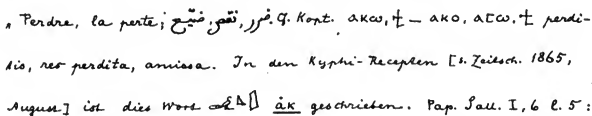 „ Perdre, la perte; ضرر, نقص, ضيّع. Cf. Kopt. ⲁⲕⲱ, ϯ — ⲁⲕⲟ, ⲁⲧⲱ, ϯ perdi-
tio, res perdita, amissa. In den Kyphi-Recepten [s. Zeitsch. 1865,
August] ist dies Wort åk geschrieben. Pap. Sall. I, 6 l. 5: